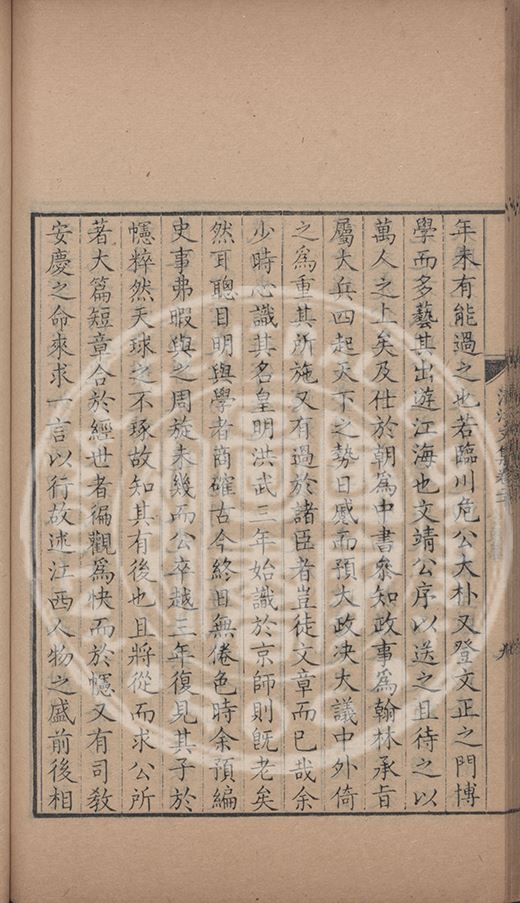 年未有能過之也若臨川危公大朴又登文正之門博
學而多藝其出遊江海也文靖公序以送之且待之以
萬人之上矣及仕於朝爲中書叅知政事爲翰林承旨
屬大兵四起天下之勢日蹙而預大政决大議中外倚
之爲重其所施又有過於諸臣者豈徒文章而已哉余
少時心識其名皇明洪武三年始識於京師則旣老矣
然耳聰目明與學者商確古今終日無倦色時余預編
史事弗暇與之周旋未幾而公卒越三年復見其子於
幰粹然天球之不琢故知其有後也且將從而求公所
著大篇短章合於經世者徧觀爲快而於幰又有司教
安慶之命來求一言以行故述江西人物之盛前後相